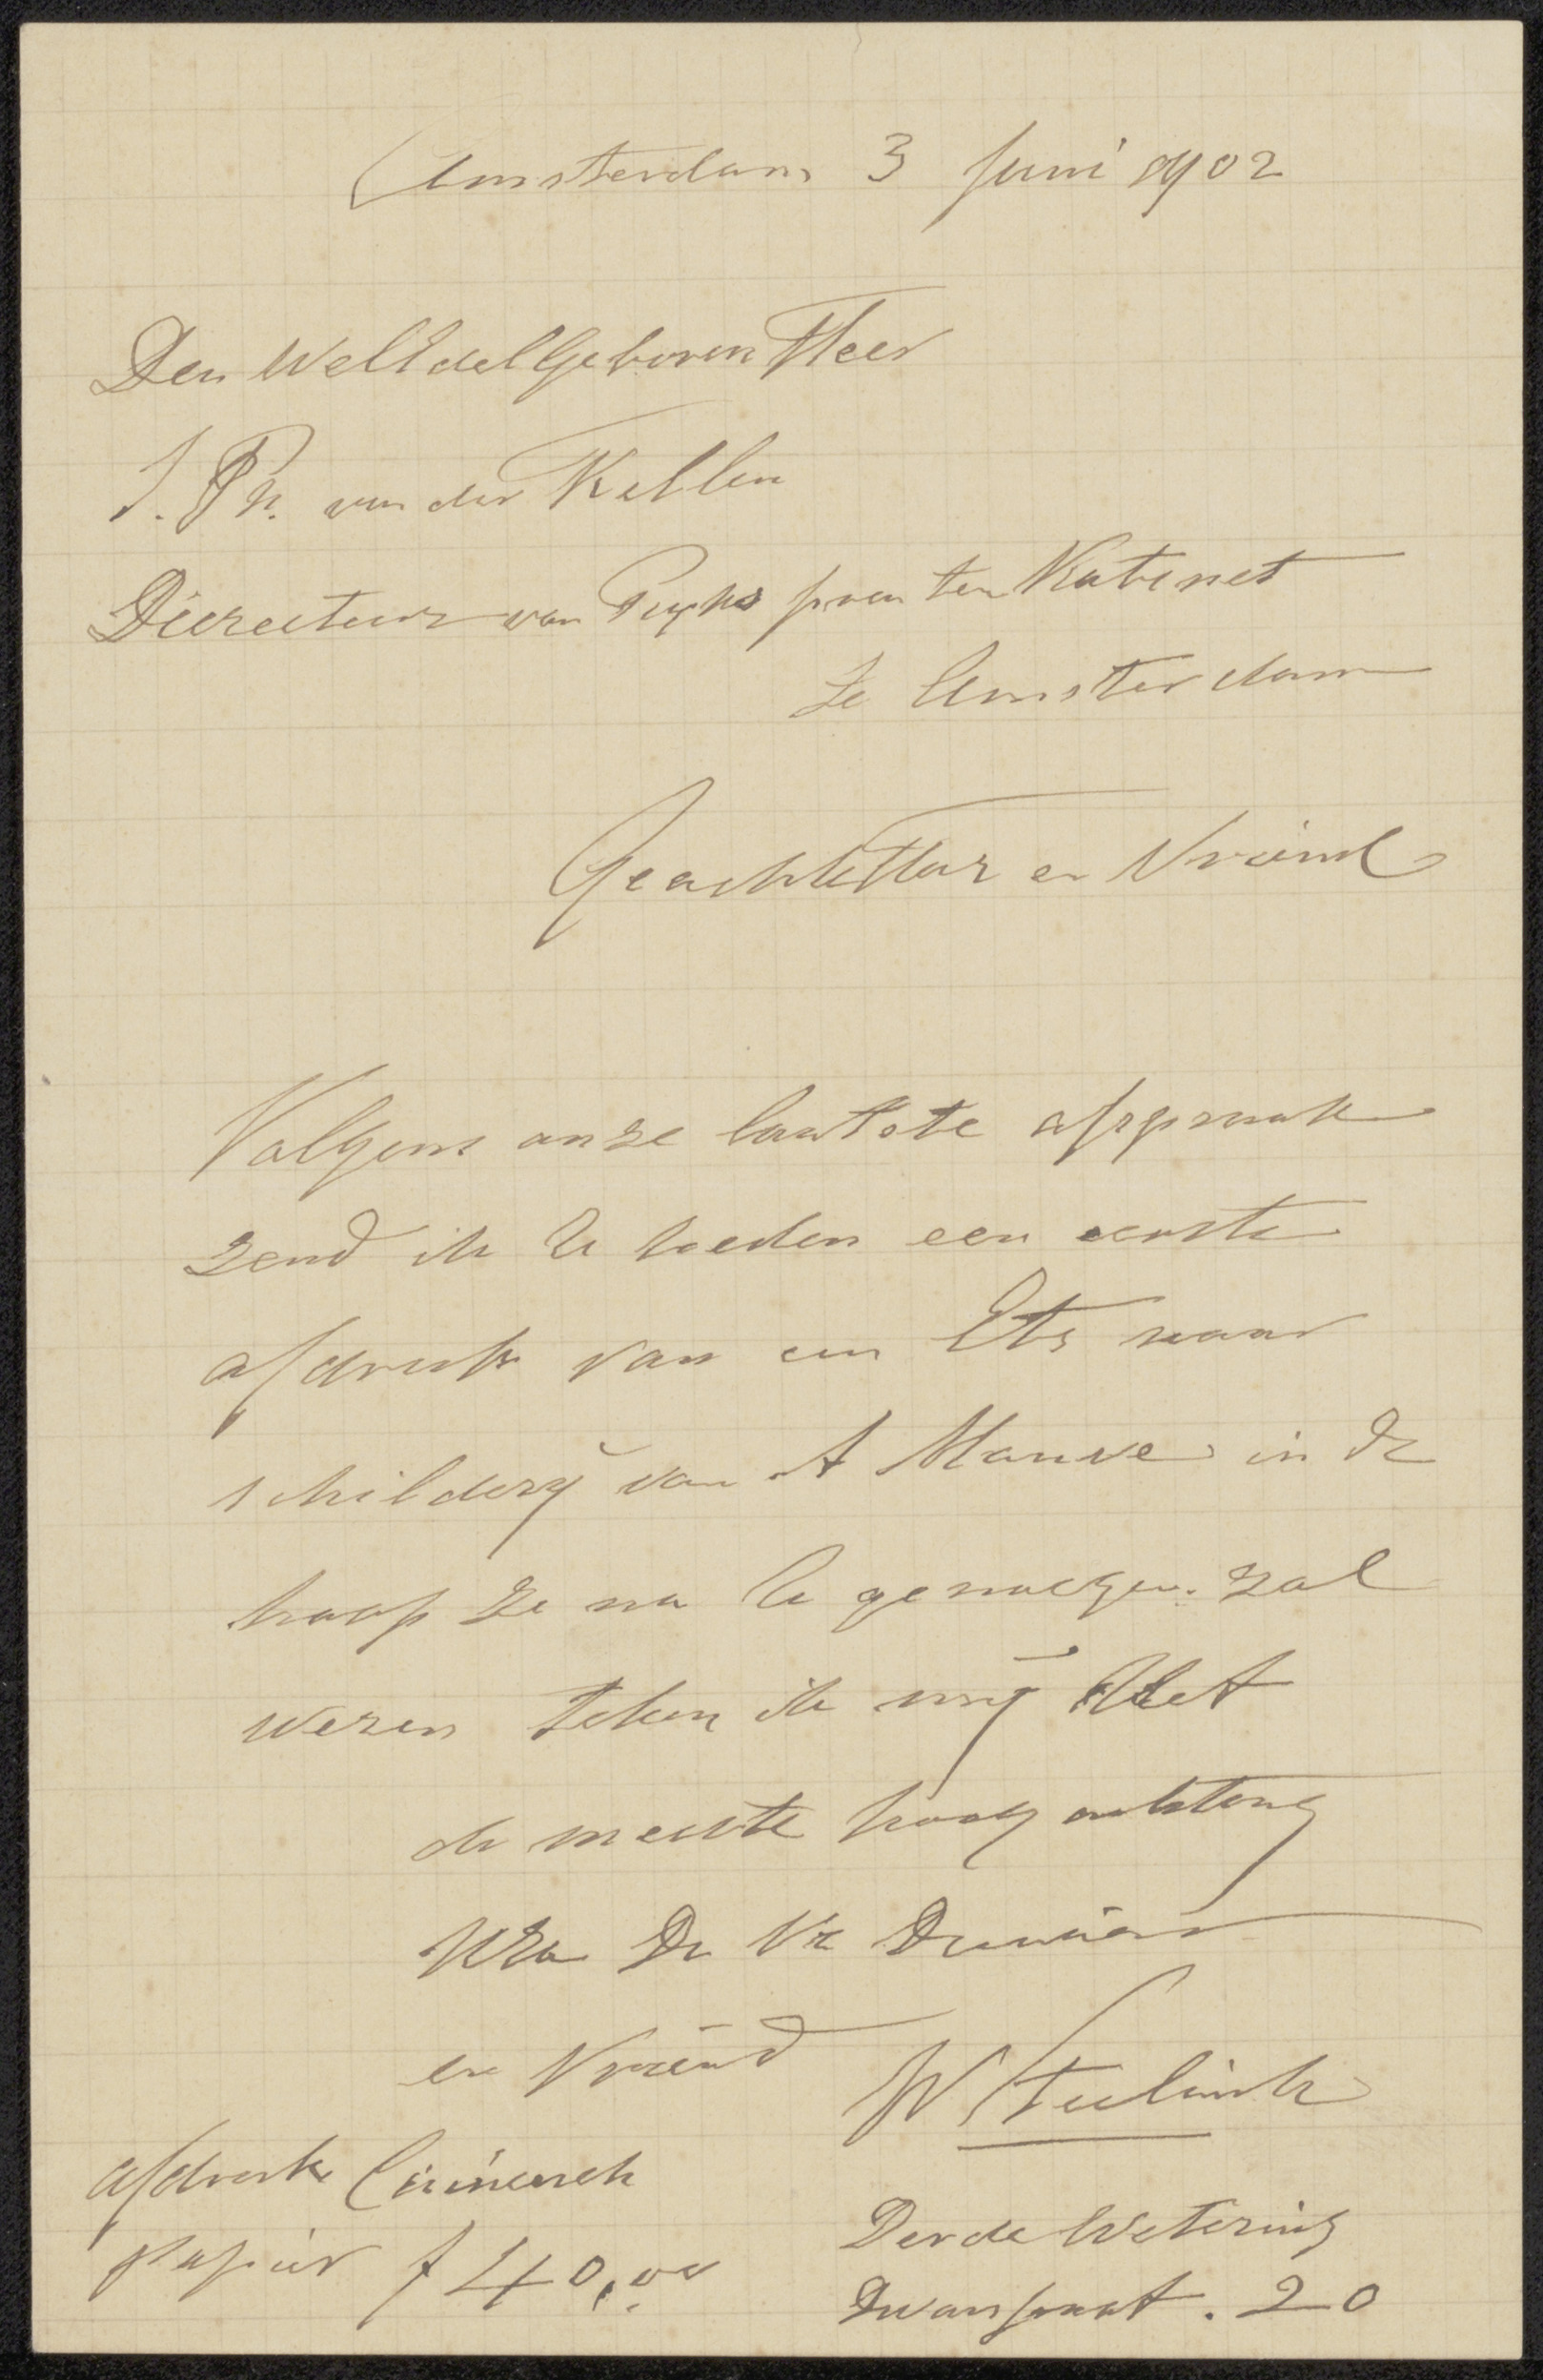 Amsterdam 3 Juni 1902
Den WelEdelGeboren Heer
J. Ph. van der Kellen
Directeur van Ryks prenten Kabinet
te Amsterdam
Geachte Heer en Vriend
Volgens onze laatste afspraak
zend ik U heden een eerste
afdruk van een Ets naar
schildery van A Mauve in de
hoop ze na U genoegen zal
wezen teken ik mij Met
de meeste hoog achting
UEd Dw Dr Dienaar
en Vriend W Steelink
afdruk Chineesch
papier f 40,00
Derde Wetering
Dwarsstraat . 20